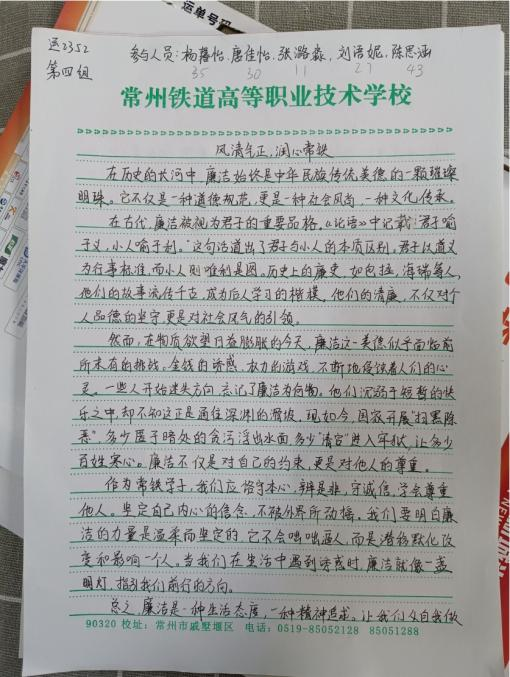 运单号码
运2352 参与人员:杨馨怡、唐佳怡、张潞淼、刘语妮、陈思涵
第四组 35 30 11 27 43
常州铁道高等职业技术学校
风清气正,润心常铁
在历史的长河中,廉洁始终是中华民族传统美德的一颗璀璨
明珠。它不仅是一种道德规范,更是一种社会风尚,一种文化传承。
在古代,廉洁被视为君子的重要品格。《论语》中记载:“君子喻
于义,小人喻于利。”这句话道出了君子与小人的本质区别。君子以道义
为行事标准,而小人则唯利是图。历史上的廉吏,如包拯、海瑞等人,
他们的故事流传千古,成为后人学习的楷模。他们的清廉,不仅对个
人品德的坚守,更是对社会风气的引领。
然而,在物质欲望日益膨胀的今天,廉洁这一美德似乎面临前
所未有的挑战。金钱的诱惑,权力的游戏,不断地侵蚀着人们的心
灵。一些人开始迷失方向,忘记了廉洁为何物。他们沉溺于短暂的快
乐之中,却不知这正是通往深渊的滑坡。现如今,国家开展“扫黑除
恶”,多少匿于暗处的贪污浮出水面,多少“清官”进入牢狱,让多少
百姓寒心。廉洁不仅是对自己的约束,更是对他人的尊重。
作为常铁学子,我们应恪守本心,辨是非,守诚信,学会尊重
他人。坚定自己内心的信念,不被外界所动摇。我们要明白廉
洁的力量是温柔而坚定的,它不会咄咄逼人,而是潜移默化改
变和影响一个人。当我们在生活中遇到诱惑时,廉洁就像一盏
明灯,指引我们前行的方向。
总之,廉洁是一种生活态度,一种精神追求。让我们从自我做
90320 校址:常州市戚墅堰区 电话:0519-85052128 85051288